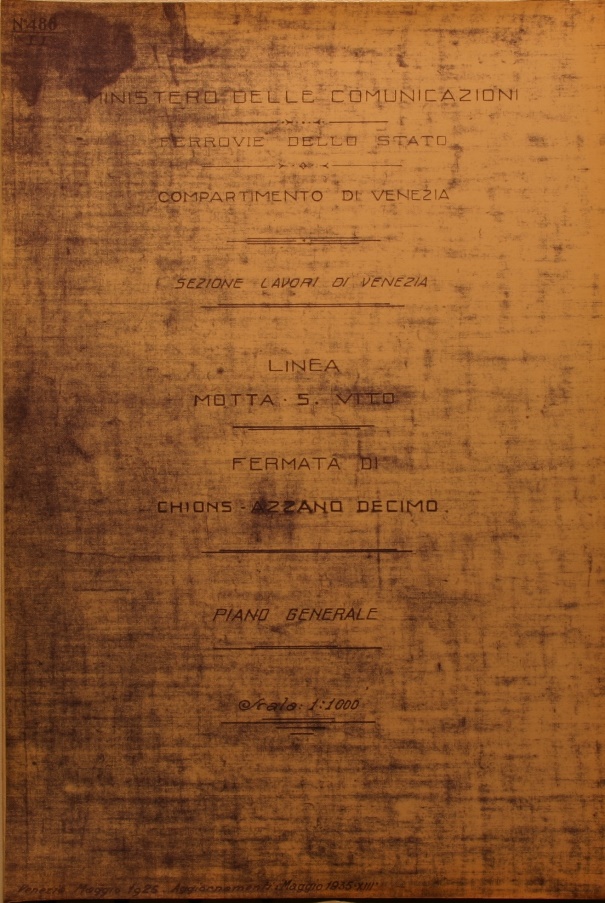 N.486
MINISTERO DELLE COMUNICAZIONI
FERROVIE DELLO STATO
COMPARTIMENTO DI VENEZIA
SEZIONE LAVORI DI VENEZIA
LINEA
MOTTA - S. VITO
FERMATA DI
CHIONS - AZZANO DECIMO.
PIANO GENERALE
Scala 1:1000
Venezia Maggio 1926 - Aggiornamenti Maggio 1935-XIII°